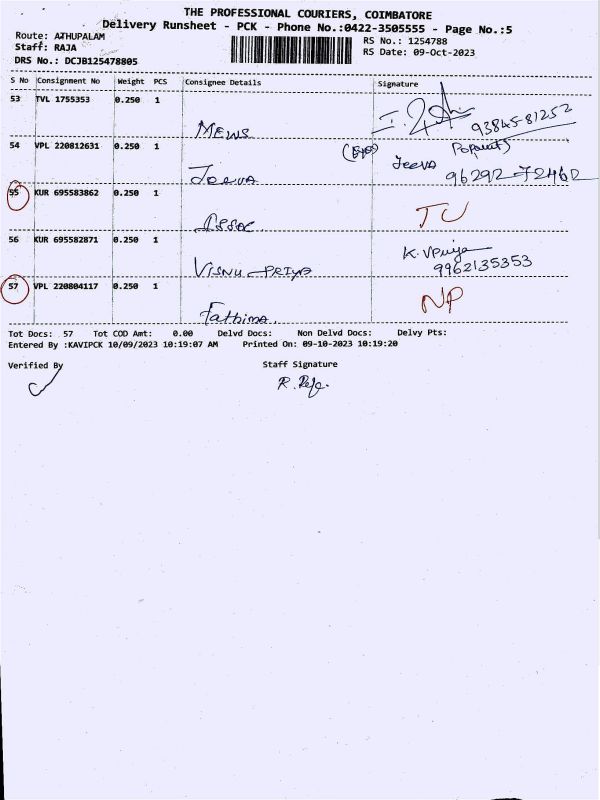 THE PROFESSIONAL COURIERS, COIMBATORE
Delivery Runsheet - PCK - Phone No.:0422-3505555 - Page No.:5
Route: ATHUPALAM
RS No.: 1254788
Staff: RAJA
RS Date: 09-Oct-2023
DRS No.: DCJB125478805
S No Consignment No Weight PCS Consignee Details Signature
53 TVL 1755353 0.250 1
MEWS 93845-81252
54 VPL 220812631 0.250 1
Jeeva Jeeva 96292-72462
55 KUR 695583862 0.250 1
TC
56 KUR 695582871 0.250 1
VISNU PRIYA K. VPriya
9962135353
57 VPL 220804117 0.250 1
Fathima. NP
Tot Docs: 57 Tot COD Amt: 0.00 Delvd Docs: Non Delvd Docs: Delvy Pts:
Entered By :KAVIPCK 10/09/2023 10:19:07 AM Printed On: 09-10-2023 10:19:20
Verified By Staff Signature
R. Raja.